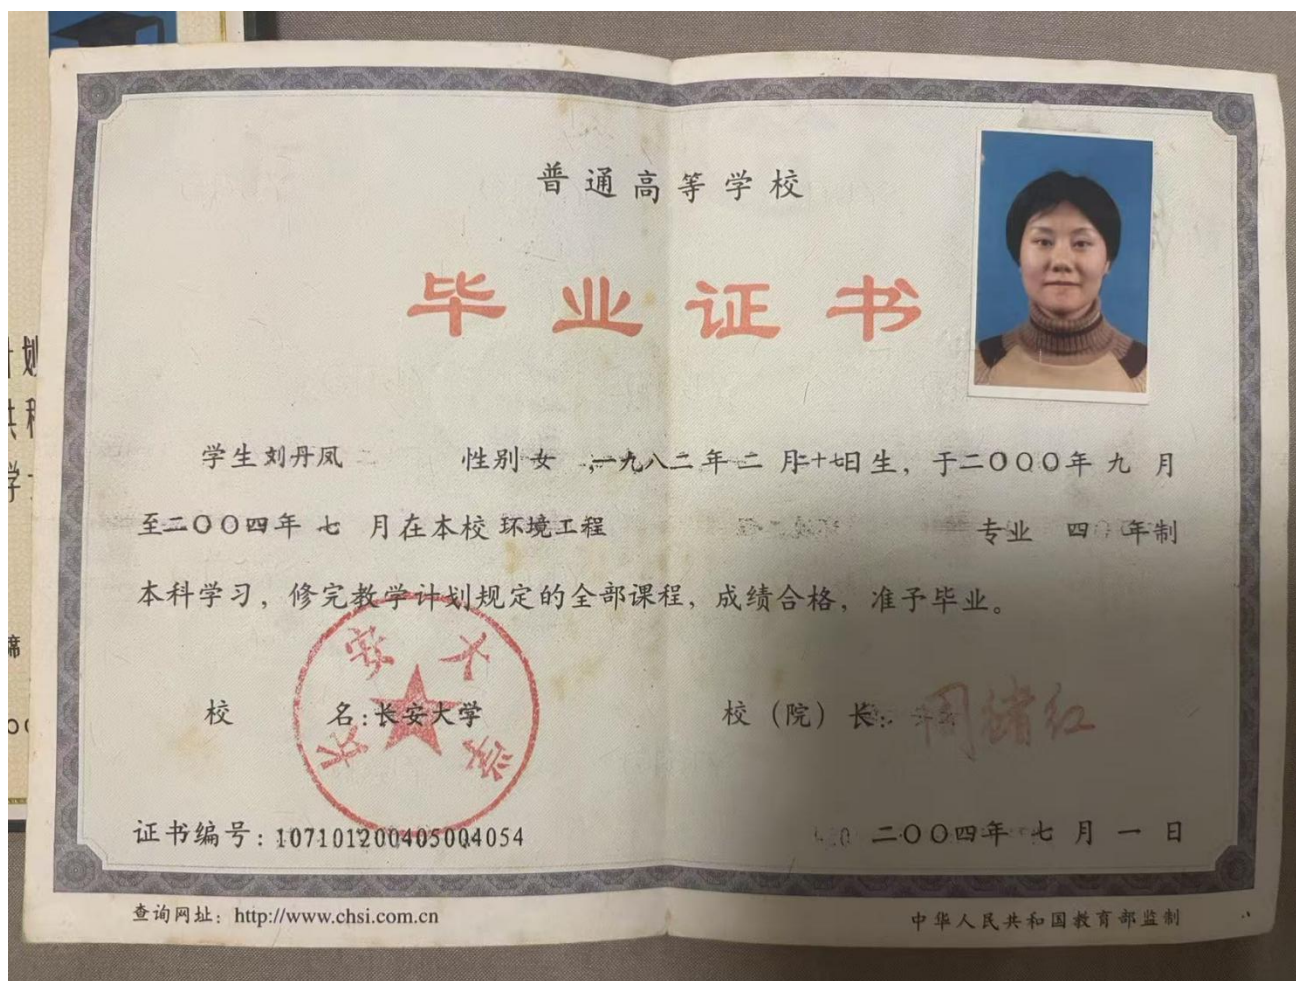 普通高等学校
毕业证书
学生刘丹凤 性别女 ,一九八二年二月二十七日生，于二〇〇〇年九月
至二〇〇四年七月在本校环境工程 专业 四 年制
本科学习，修完教学计划规定的全部课程，成绩合格，准予毕业。
长安大学
校 名：长安大学 校（院）长： 周绪红
证书编号：107101200405004054 二〇〇四年七月一日
查询网址：http://www.chsi.com.cn 中华人民共和国教育部监制
划
学
席